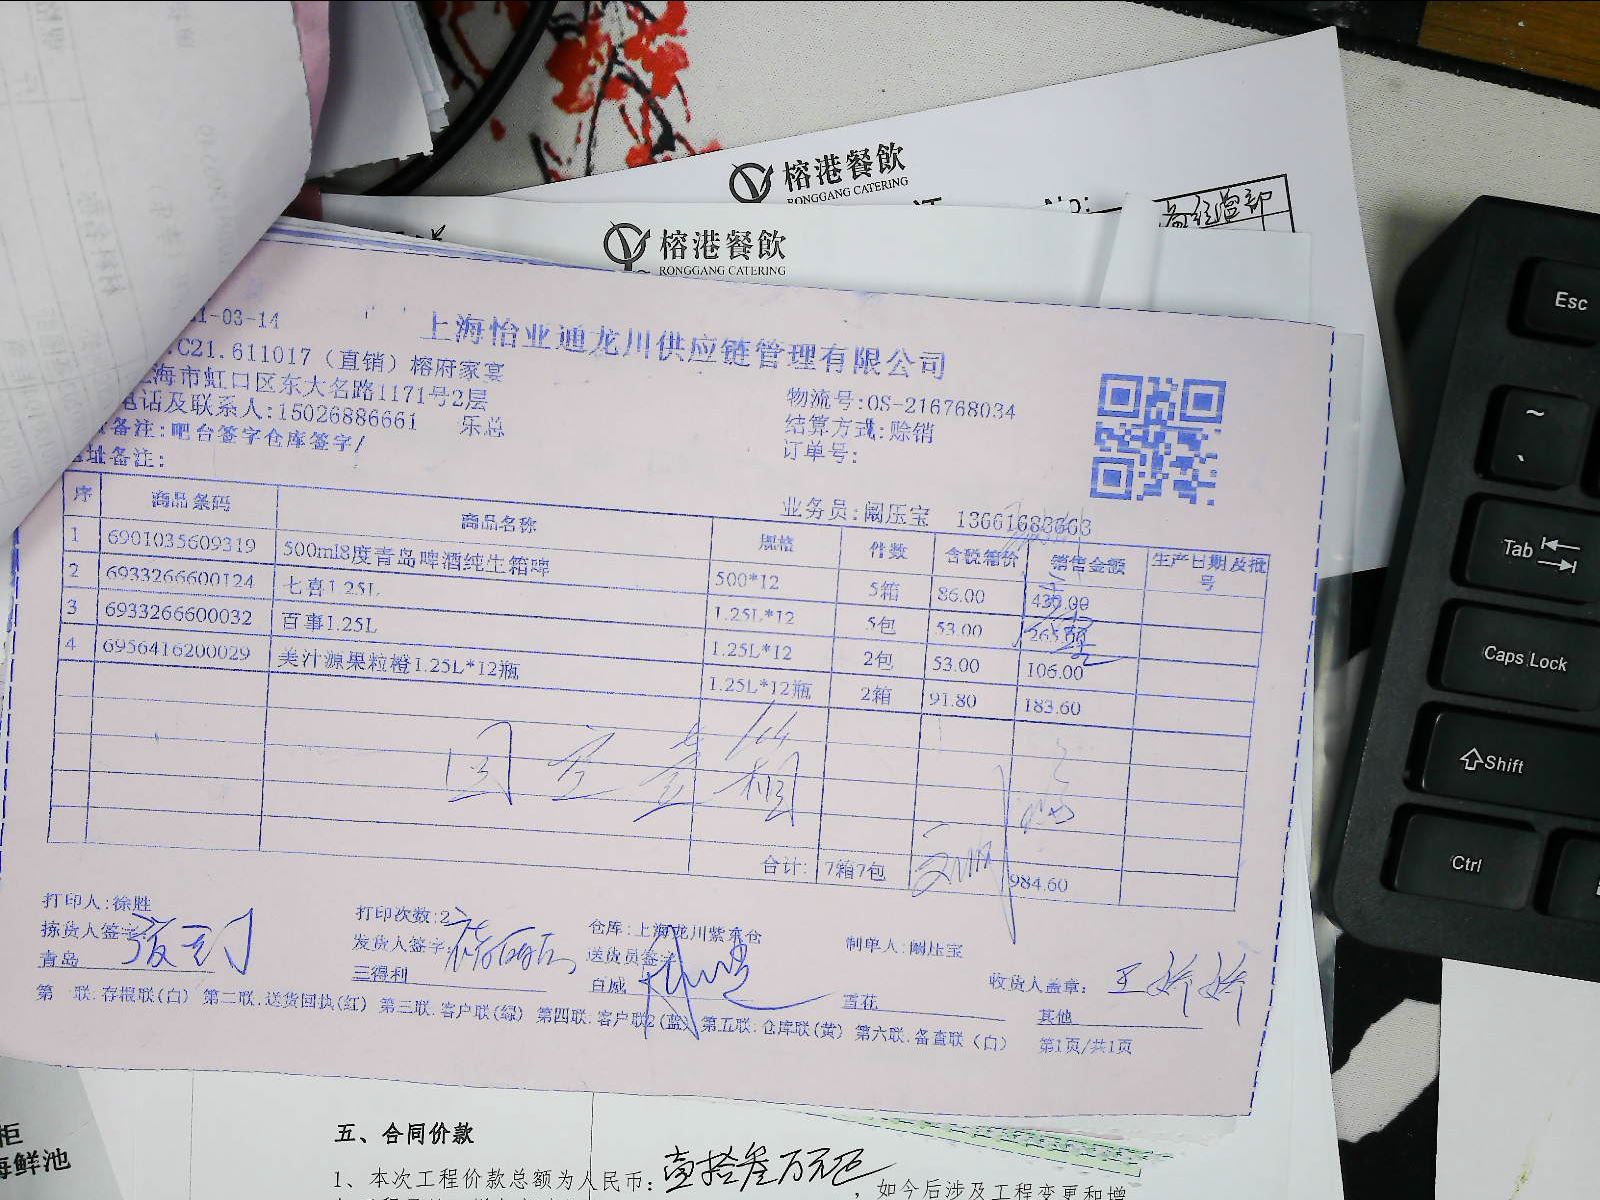 榕港餐飲
RONGGANG CATERING
No:
榕港餐飲
RONGGANG CATERING
1-03-14
上海怡亚通龙川供应链管理有限公司
.C21.611017（直销）榕府家宴
海市虹口区东大名路1171号2层
电话及联系人:15026886661 乐总
备注:吧台签字仓库签字/
址备注:
物流号:OS-216768034
结算方式:赊销
订单号:
业务员:阚压宝 13661683663
序 商品条码 商品名称 规格 件数 含税箱价 销售金额 生产日期及批号
1 6901035609319 500ml8度青岛啤酒纯生箱啤 500*12 5箱 86.00 430.00
2 6933266600124 七喜1.25L 1.25L*12 5包 53.00 265.00
3 6933266600032 百事1.25L 1.25L*12 2包 53.00 106.00
4 6956416200029 美汁源果粒橙1.25L*12瓶 1.25L*12瓶 2箱 91.80 183.60
合计: 7箱7包 984.60
打印人:徐胜 打印次数:2 仓库:上海龙川紫东仓 制单人:阚压宝
拣货人签字: 发货人签字: 送货员签字: 收货人盖章: 王娇娇
青岛 三得利 百威 雪花 其他
第一联.存根联(白) 第二联.送货回执(红) 第三联.客户联(绿) 第四联.客户联2(蓝) 第五联.仓库联(黄) 第六联.备查联(白) 第1页/共1页
五、合同价款
1、本次工程价款总额为人民币:壹拾叁万元正，如今后涉及工程变更和增
柜
海鲜池
Esc
~
Tab
Caps Lock
Shift
Ctrl